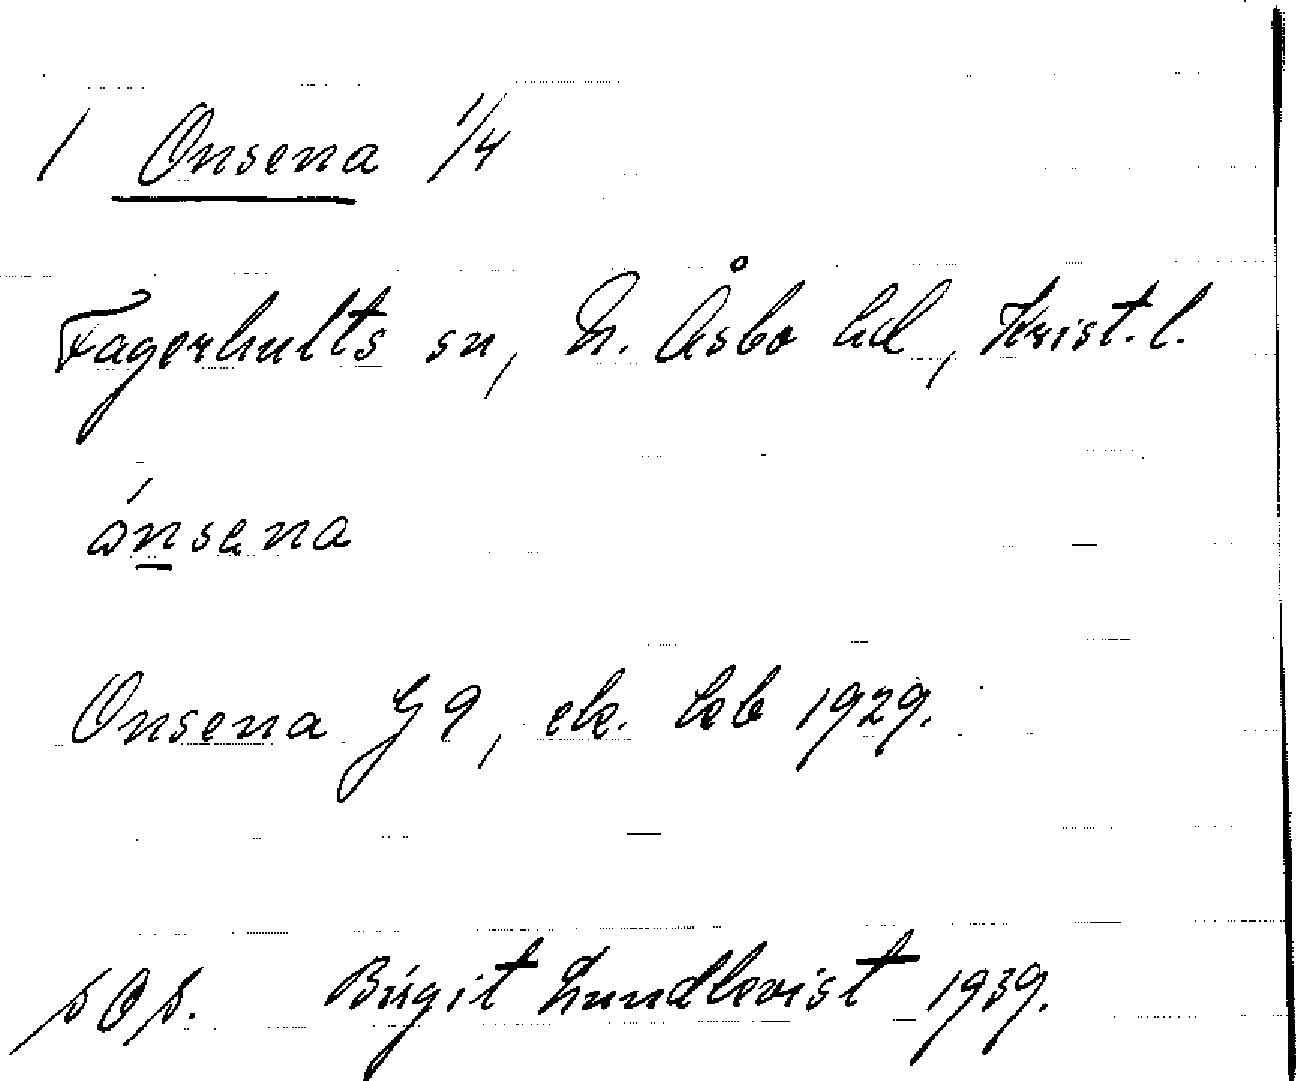 1 Onsena 1/4
Fagerhults sn, N. Åsbo hd, Krist. l.
ónsena
Onsena G 9, ek. kb 1929.
Birgit Lundkvist 1939.